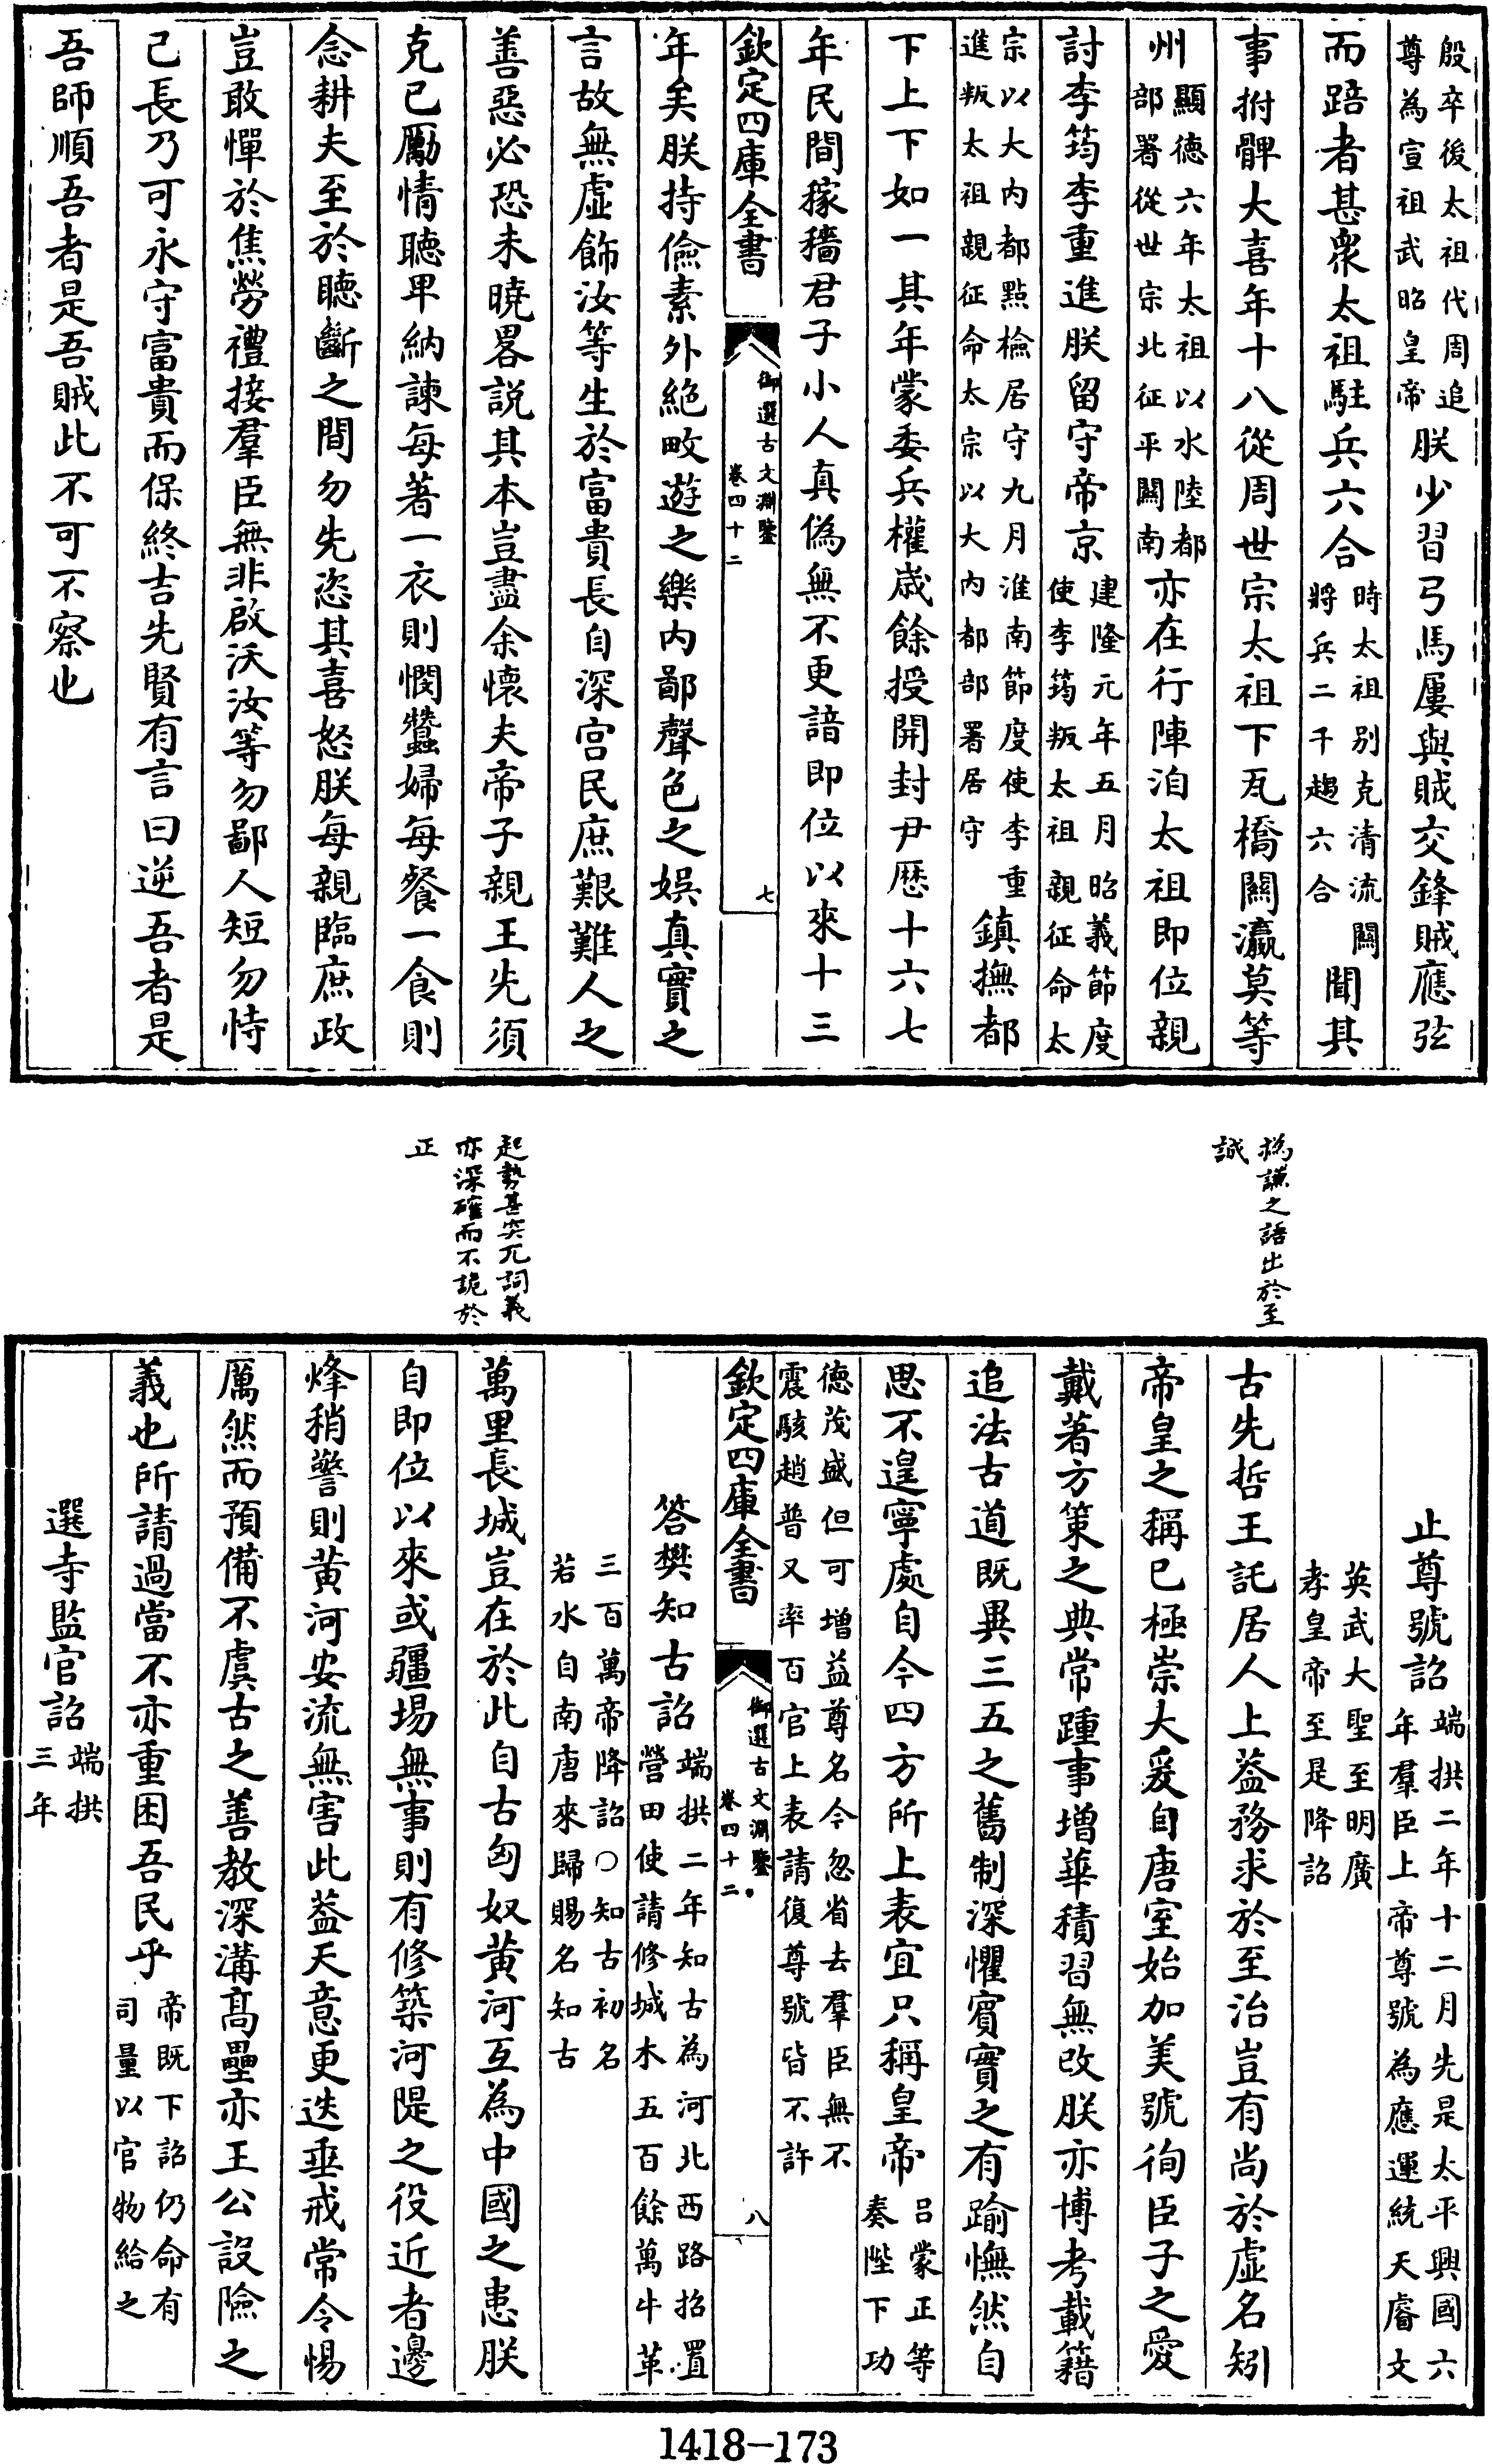 殷卒後太祖代周追
尊為宣祖武昭皇帝朕少習弓馬屢與賊交鋒賊應弦
而踣者甚衆太祖駐兵六合時太祖別克清流關
將兵二千趨六合聞其
事拊髀大喜年十八從周世宗太祖下瓦橋關瀛莫等
州顯德六年太祖以水陸都
部署從世宗北征平關南亦在行陣洎太祖即位親
討李筠李重進朕留守帝京建隆元年五月昭義節度
使李筠叛太祖親征命太
宗以大内都點檢居守九月淮南節度使李重
進叛太祖親征命太宗以大内都部署居守鎮撫都
下上下如一其年蒙委兵權歲餘授開封尹歷十六七
年民間稼穡君子小人真偽無不更諳即位以來十三
欽定四庫全書
御選古文淵鑒
卷四十二
七
年矣朕持儉素外絶畋遊之樂内鄙聲色之娯真實之
言故無虛飾汝等生於富貴長自深宮民庶艱難人之
善惡必恐未曉畧說其本豈盡余懷夫帝子親王先須
克己勵情聽卑納諫每著一衣則憫蠶婦每餐一食則
念耕夫至於聽斷之間勿先恣其喜怒朕每親臨庶政
豈敢憚於焦勞禮接羣臣無非啟沃汝等勿鄙人短勿恃
己長乃可永守富貴而保終吉先賢有言曰逆吾者是
吾師順吾者是吾賊此不可不察也
撝謙之語出於至
誠
起勢甚突兀詞義
亦深確而不詭於
正
止尊號詔端拱二年十二月先是太平興國六
年羣臣上帝尊號為應運統天睿文
英武大聖至明廣
孝皇帝至是降詔
古先哲王託居人上葢務求於至治豈有尚於虛名矧
帝皇之稱已極崇大爰自唐室始加美號徇臣子之愛
戴著方策之典常踵事增華積習無改朕亦博考載籍
追法古道既異三五之舊制深懼賓實之有踰憮然自
思不遑寧處自今四方所上表宜只稱皇帝呂蒙正等
奏陛下功
德茂盛但可增益尊名今忽省去羣臣無不
震駭趙普又率百官上表請復尊號皆不許
欽定四庫全書
御選古文淵鑒
卷四十二
八
答樊知古詔端拱二年知古為河北西路招置
營田使請修城木五百餘萬牛革
三百萬帝降詔○知古初名
若水自南唐來歸賜名知古
萬里長城豈在於此自古匈奴黃河互為中國之患朕
自即位以來或疆場無事則有修築河隄之役近者邊
烽稍警則黃河安流無害此葢天意更迭垂戒常令惕
厲然而預備不虞古之善教深溝高壘亦王公設險之
義也所請過當不亦重困吾民乎帝既下詔仍命有
司量以官物給之
選寺監官詔端拱
三年
1418-173